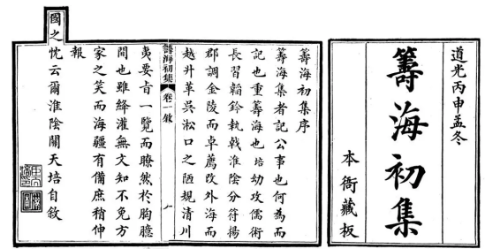 道光丙申孟冬
籌海初集
本衙藏板
籌海初集序
籌海集者記公事也何為而
記也重籌海也培幼攻儒術
長習韜鈐執戟淮陰分符揚
郡調金陵而卓薦改外海而
越升革吳淞口之陋規清川
籌海初集 卷一敘 一
夷要旨一覽而瞭然於胸臆
間也雖絳灌無文知不免方
家之笑而海疆有備庶稍伸
報
國之忱云爾淮陰關天培自敘